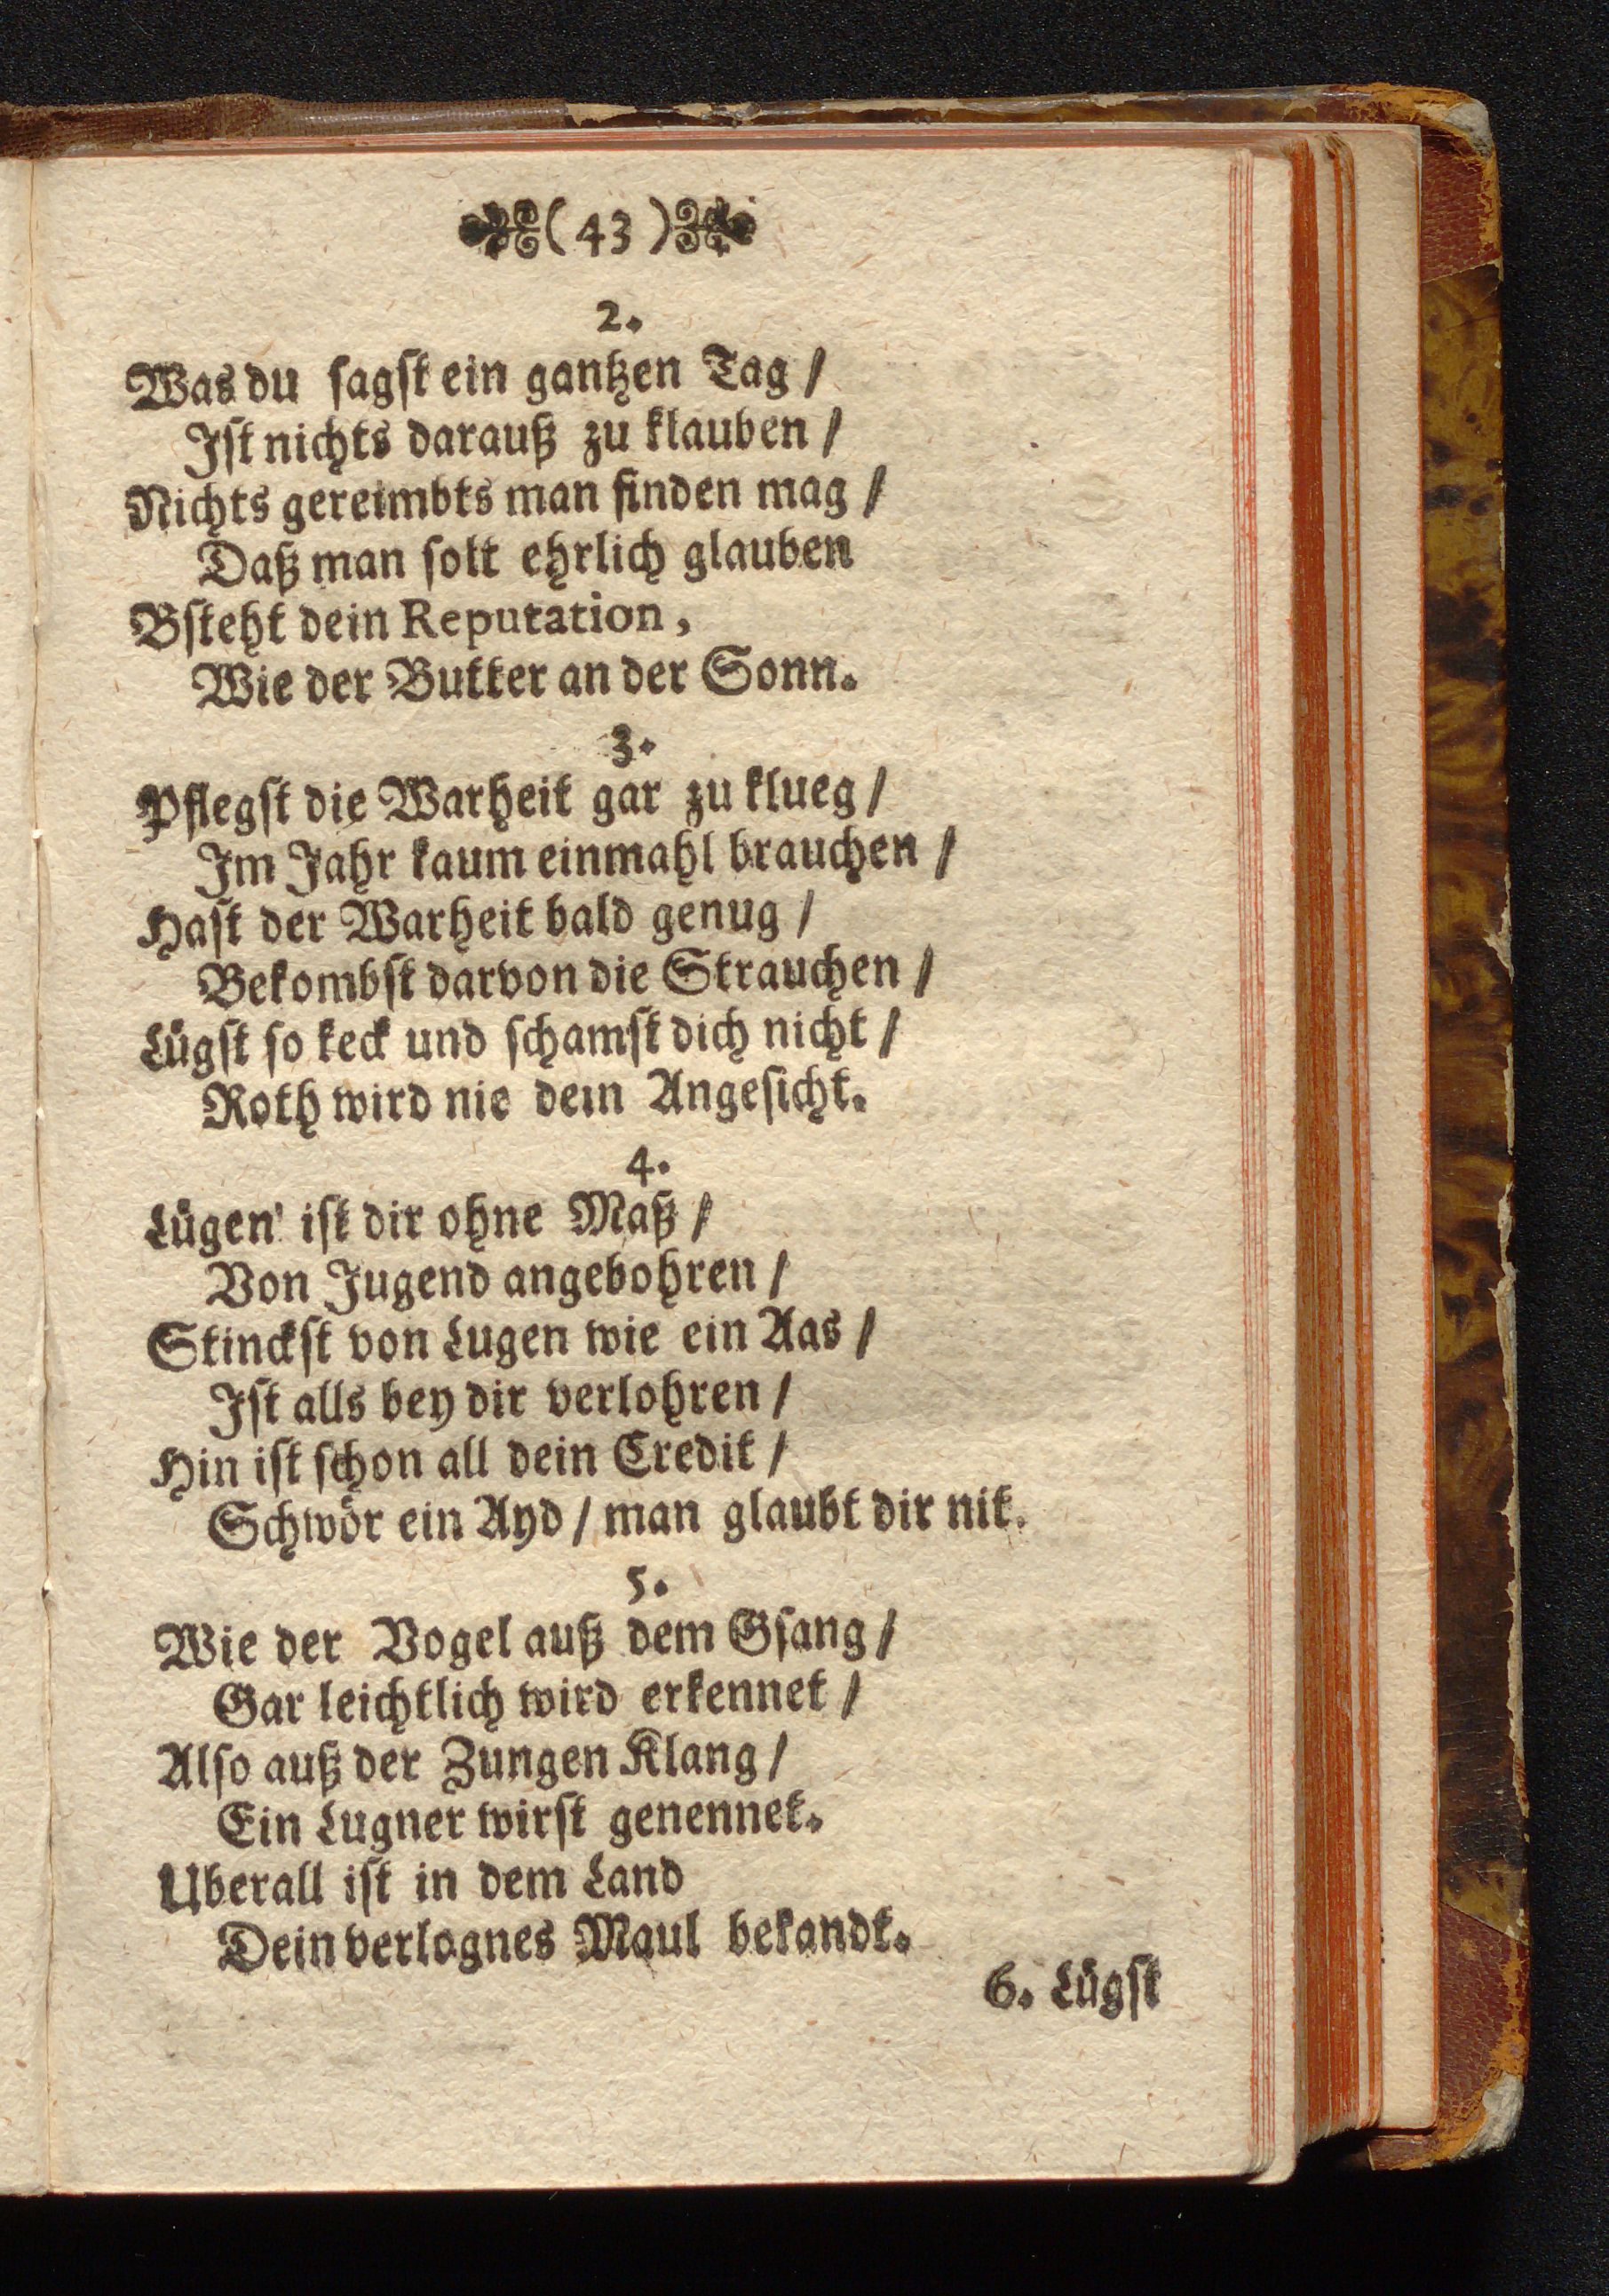 ( 43 )
2.
Was du sagst ein gantzen Tag /
Ist nichts darauß zu klauben /
Nichts gereimbts man finden mag /
Daß man solt ehrlich glauben
Bsteht dein Reputation,
Wie der Butter an der Sonn.
3.
Pflegst die Warheit gar zu klueg /
Im Jahr kaum einmahl brauchen /
Hast der Warheit bald genug /
Bekombst darvon die Strauchen /
Lügst so keck und schamst dich nicht /
Roth wird nie dein Angesicht.
4.
Lügen' ist dir ohne Maß /
Von Jugend angebohren /
Stinckst von Lugen wie ein Aas /
Ist alls bey dir verlohren /
Hin ist schon all dein Credit /
Schwör ein Ayd / man glaubt dir nit.
5.
Wie der Vogel auß dem Gsang /
Gar leichtlich wird erkennet /
Also auß der Zungen Klang /
Ein Lugner wirst genennet.
Uberall ist in dem Land
Dein verlognes Maul bekandt.
6. Lügst